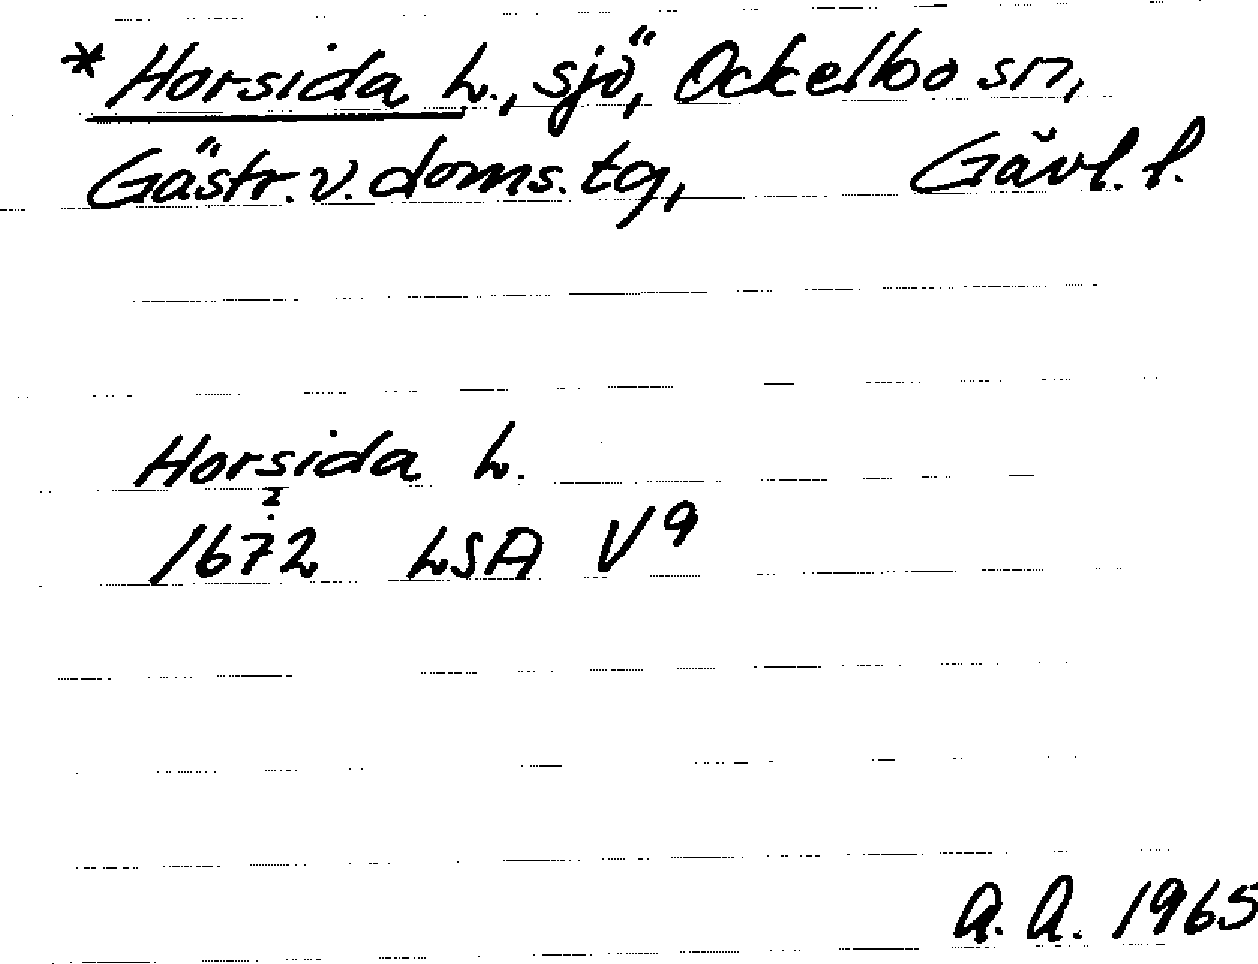 *Horsida L., sjö, Ockelbo sn,
Gästr. v. doms. tg, Gävl. l.
Horsida L.
2
1672 LSA V9
A. A. 1965